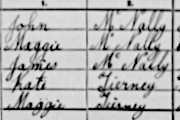 1. 2.
John McNally
Maggie McNally
James McNally
Kate Tierney
Maggie Tierney